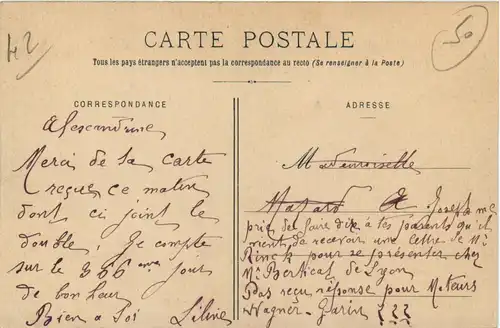 42
50
CARTE POSTALE
Tous les pays étrangers n'acceptent pas la correspondance au recto (Se renseigner à la Poste)
CORRESPONDANCE
Alexandrine
Merci de ta carte
reçue ce matin
dont ci joint le
double; Je compte
sur le 366 eme jour
de bonheur
Bien à toi
ADRESSE
Mademoiselle
Joseph me
prie de faire dire à tes parents qu'il
vient de recevoir une lettre de Mr
Rinck pour se présenter chez
Mr Berticat de Lyon
Pas reçu réponse pour Moteurs
Wagner-Garin ???